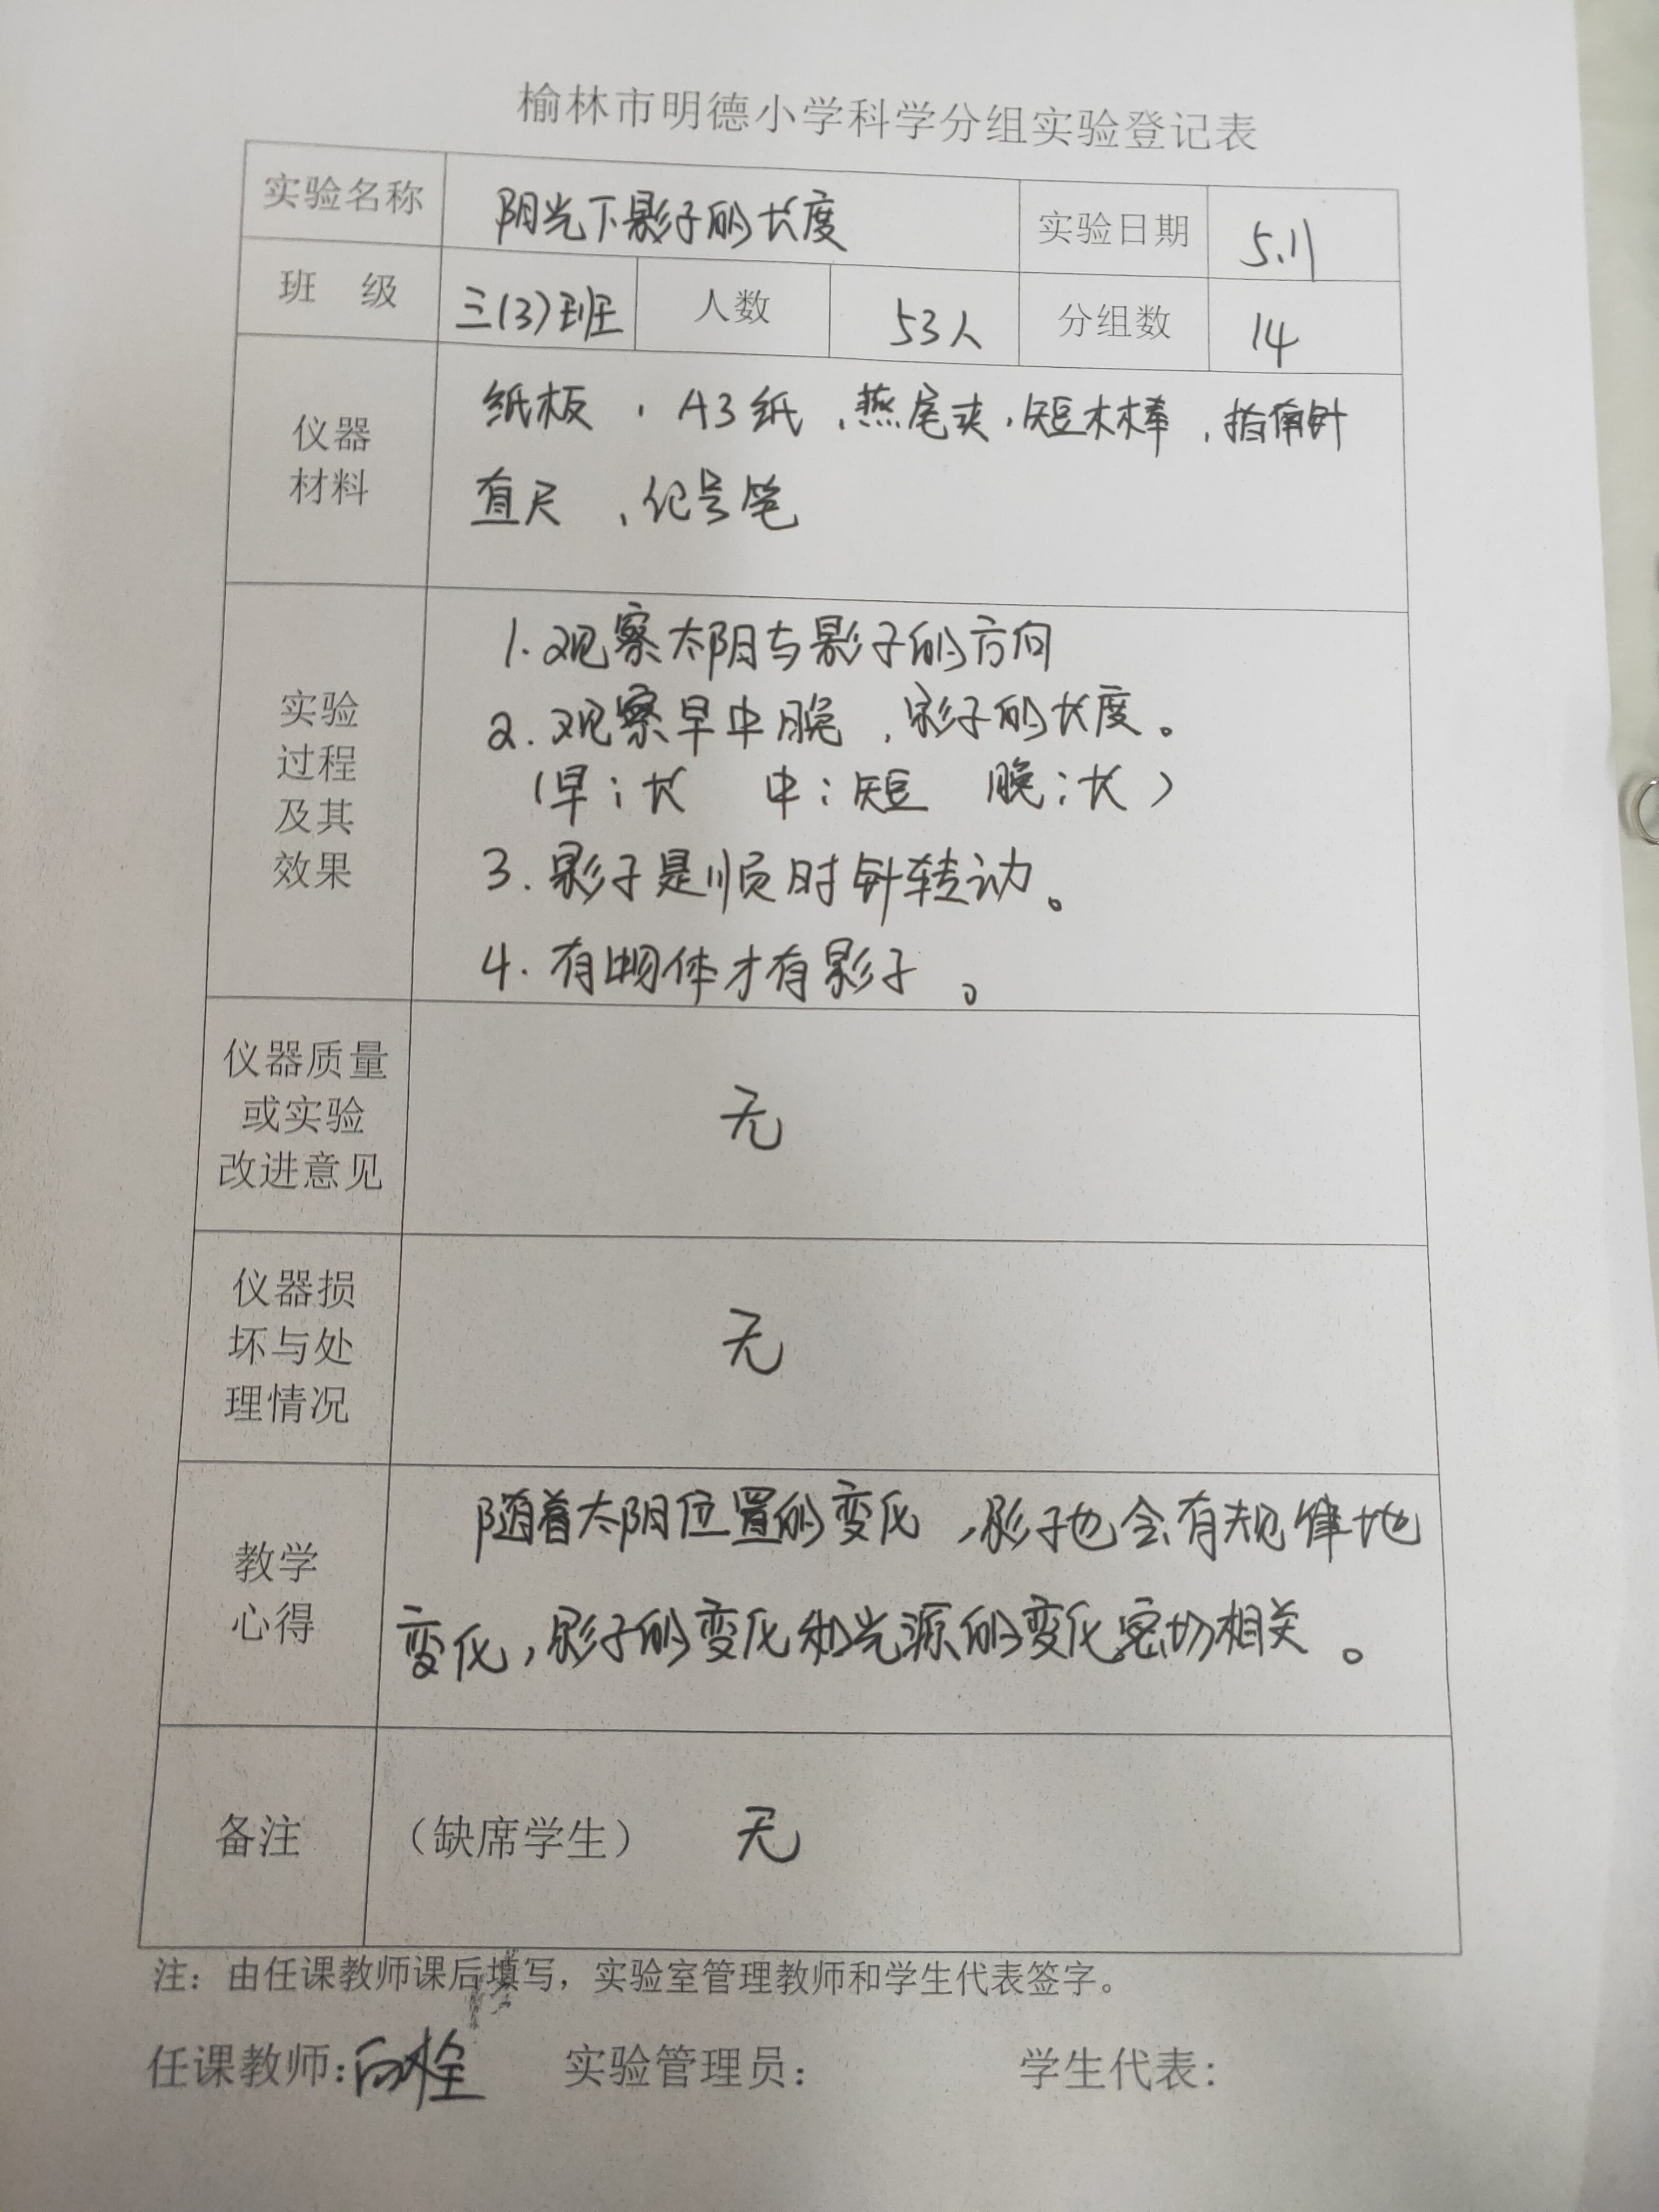 榆林市明德小学科学分组实验登记表
实验名称 阳光下影子的长度 实验日期 5.11
班 级 三(3)班 人数 53人 分组数 14
仪器
材料
纸板、A3纸、燕尾夹、短木棒、指南针
直尺、记号笔
实验
过程
及其
效果
1.观察太阳与影子的方向
2.观察早中晚,影子的长度。
(早:长 中:短 晚:长)
3.影子是顺时针转动。
4.有物体才有影子。
仪器质量
或实验
改进意见
无
仪器损
坏与处
理情况
无
教学
心得
随着太阳位置的变化,影子也会有规律地
变化,影子的变化和光源的变化密切相关。
备注 (缺席学生) 无
注:由任课教师课后填写,实验室管理教师和学生代表签字。
任课教师:白栓 实验管理员: 学生代表: